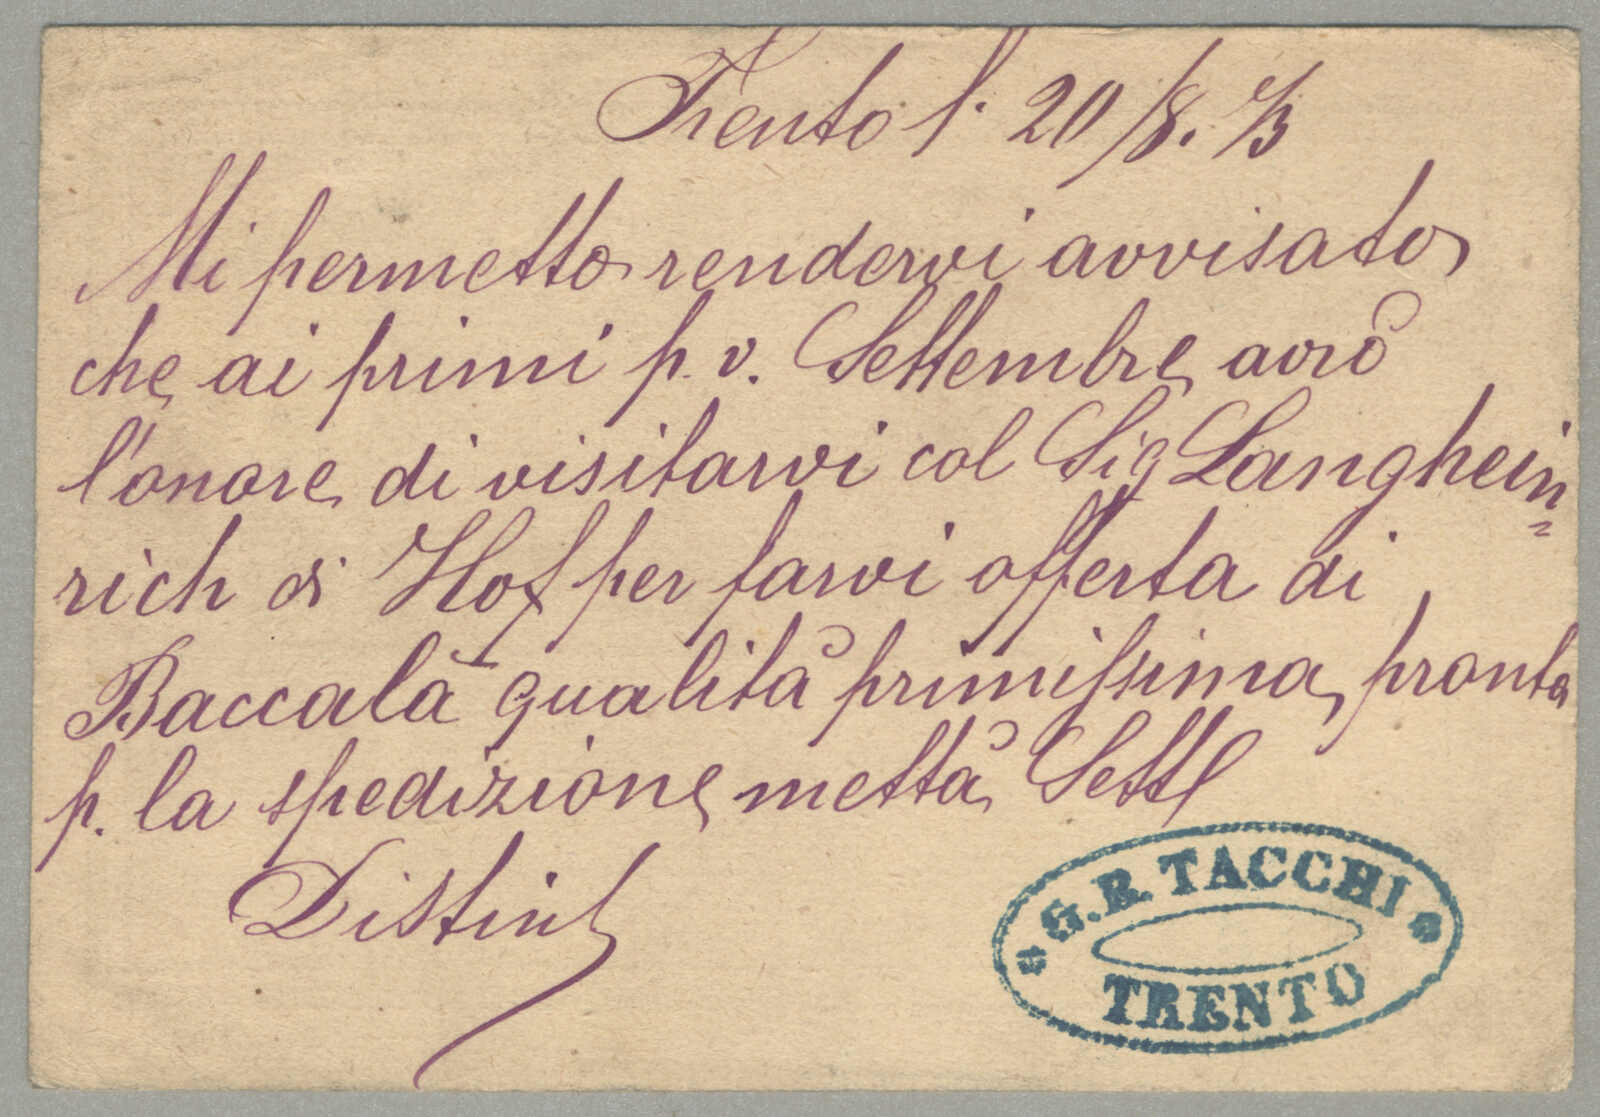 Trento l. 20/8. 73
Mi permetto rendervi avvisato
che ai primi p. v. Settembre avrò
l'onore di visitarvi col Sig Langhein=
rich di Hof per farvi offerta di
Baccalà qualità primissima, pronta
p. la spedizione mettà Sett
Distint
G. B. TACCHI
TRENTO